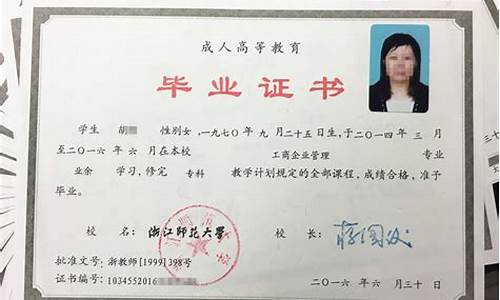 成人高等教育
毕业证书
学生 胡 性别女,一九七〇年 九 月二十五日生,于二〇一四年 三 月
至二〇一六年 六 月在本校 工商企业管理 专业
业余 学习,修完 专科 教学计划规定的全部课程,成绩合格,准予
毕业。
校 名: 浙江师范大学 校 长:
批准文号: 浙教师[1999]398号
证书编号: 1034552016
二〇一六年 六 月三十日